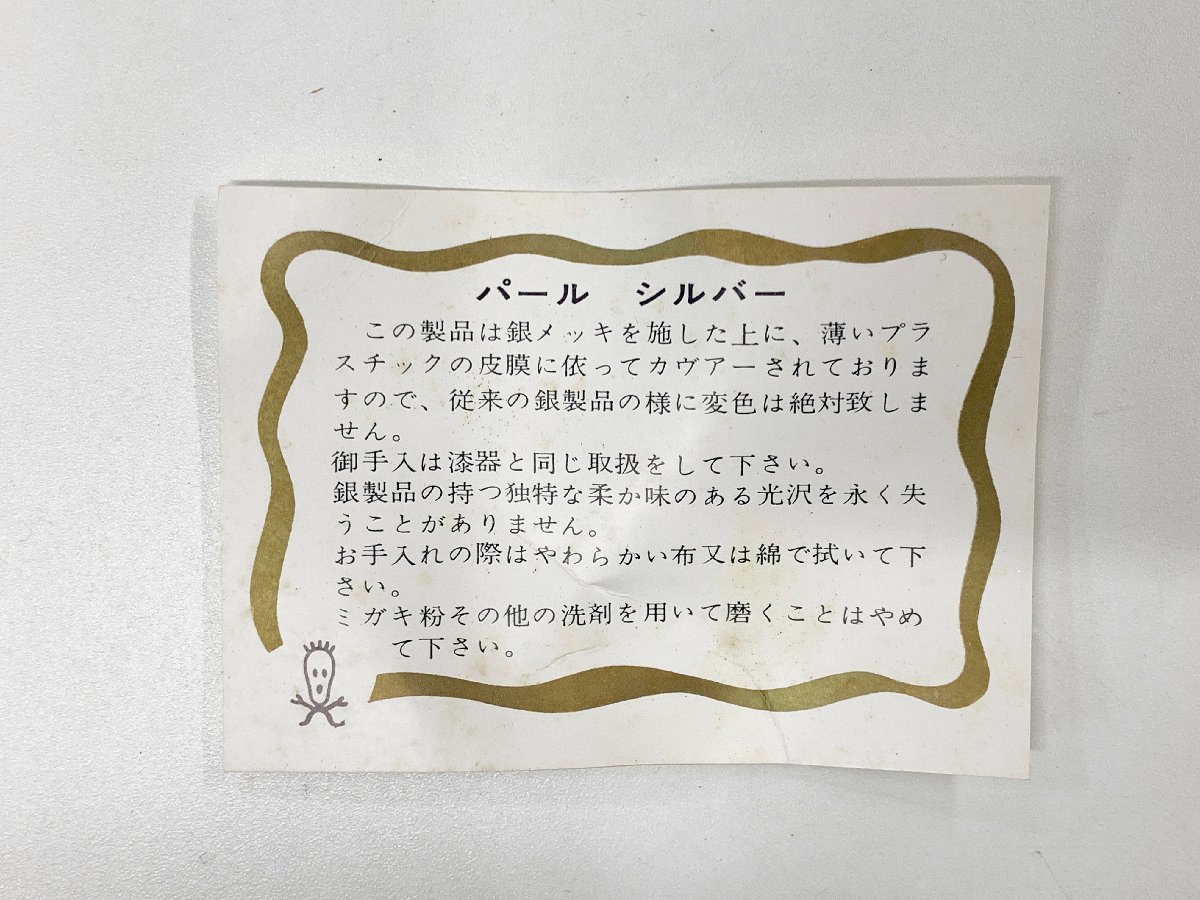 パール　シルバー
この製品は銀メッキを施した上に、薄いプラ
スチックの皮膜に依ってカヴアーされておりま
すので、従来の銀製品の様に変色は絶対致しま
せん。
御手入は漆器と同じ取扱をして下さい。
銀製品の持つ独特な柔か味のある光沢を永く失
うことがありません。
お手入れの際はやわらかい布又は綿で拭いて下
さい。
ミガキ粉その他の洗剤を用いて磨くことはやめ
て下さい。